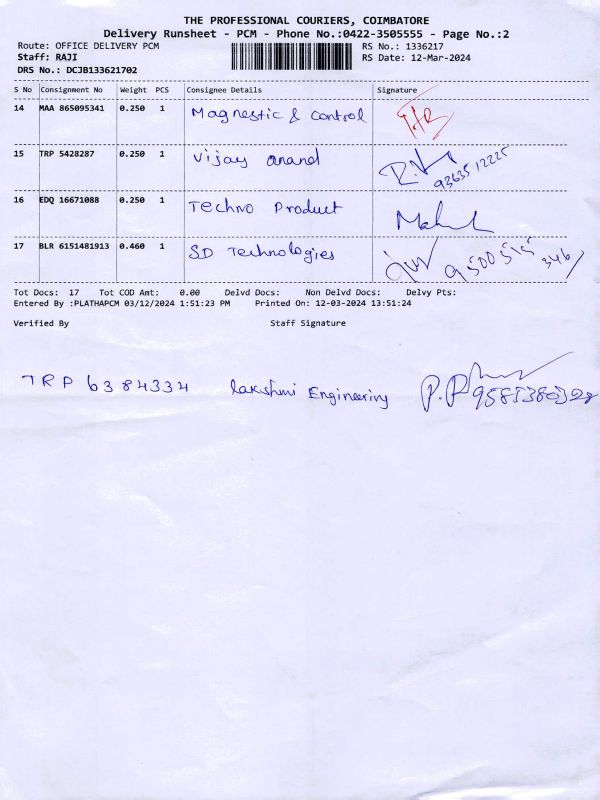 THE PROFESSIONAL COURIERS, COIMBATORE
Delivery Runsheet - PCM - Phone No.:0422-3505555 - Page No.:2
Route: OFFICE DELIVERY PCM RS No.: 1336217
Staff: RAJI RS Date: 12-Mar-2024
DRS No.: DCJB133621702
S No Consignment No Weight PCS Consignee Details Signature
14 MAA 865095341 0.250 1 Magnestic & control
15 TRP 5428287 0.250 1 Vijay anand 93635 12225
16 EDQ 16671088 0.250 1 Techno Product
17 BLR 6151481913 0.460 1 SD Technologies 9500 515 346
Tot Docs: 17 Tot COD Amt: 0.00 Delvd Docs: Non Delvd Docs: Delvy Pts:
Entered By :PLATHAPCM 03/12/2024 1:51:23 PM Printed On: 12-03-2024 13:51:24
Verified By Staff Signature
TRP 6384334 lakshmi Engineering